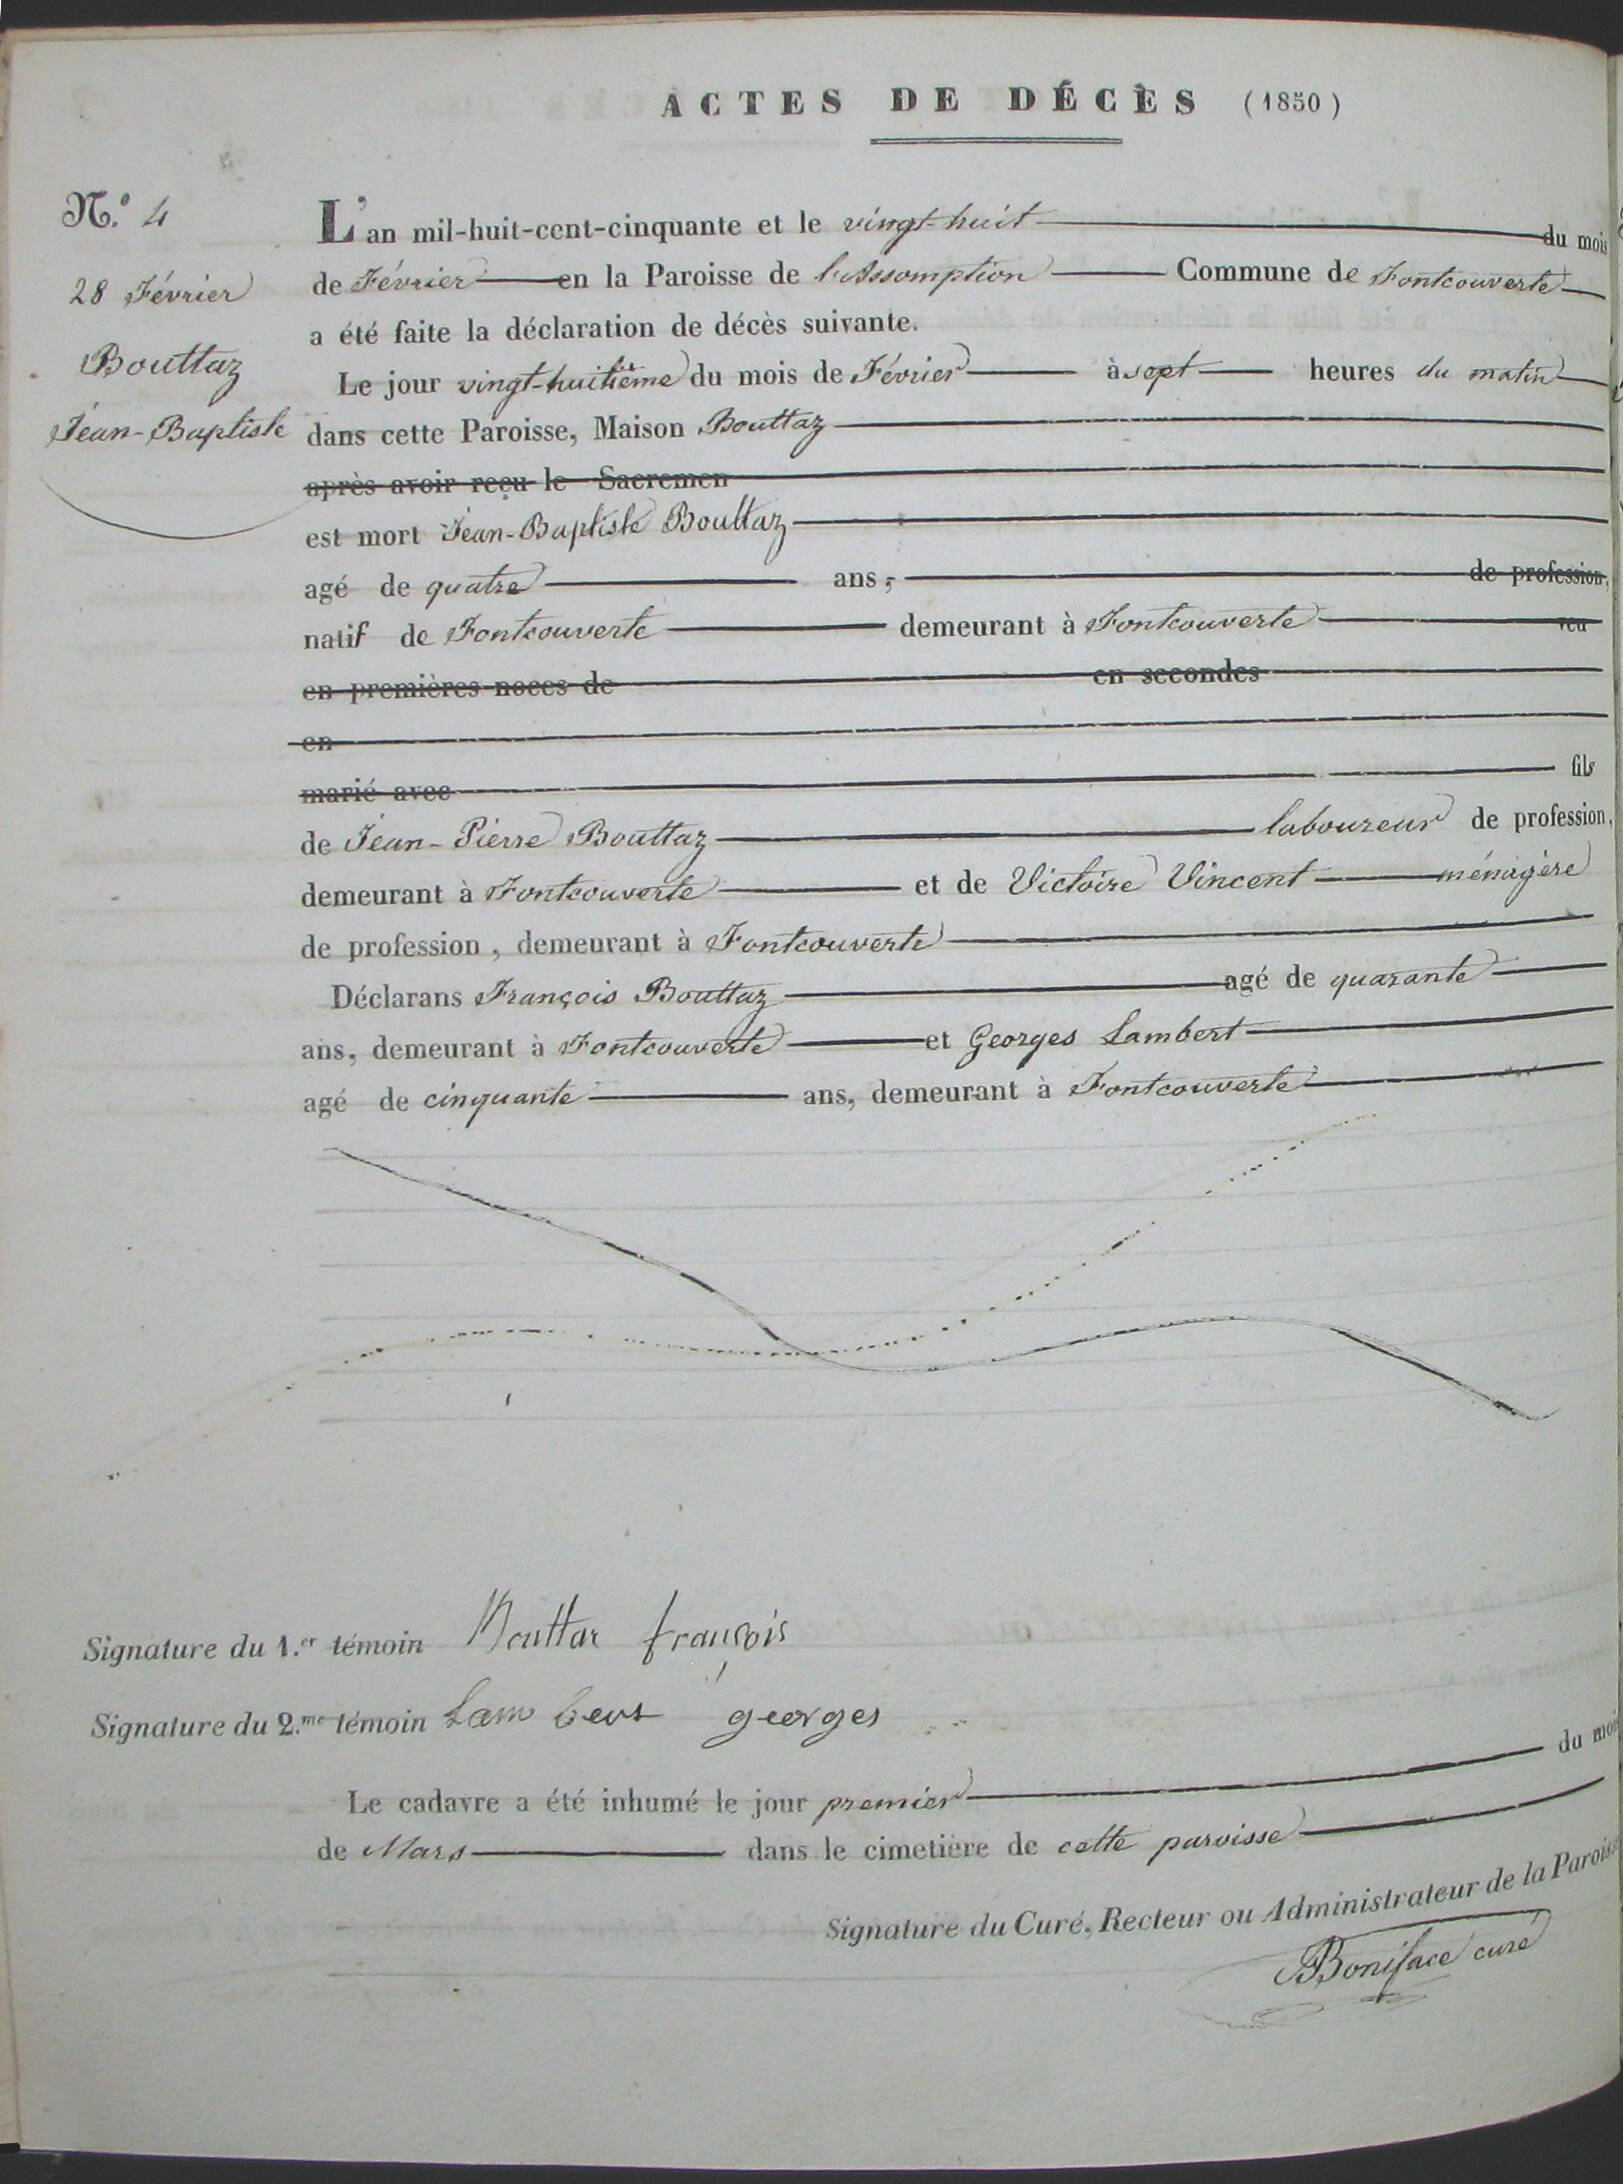 ACTES DE DÉCÈS (1850)
N.º 4
28 Février
Bouttaz
Jean-Baptiste
L'an mil-huit-cent-cinquante et le vingt-huit du mois
de Février en la Paroisse de l'Assomption Commune de Fontcouverte
a été faite la déclaration de décès suivante.
Le jour vingt-huitième du mois de Février à sept heures du matin
dans cette Paroisse, Maison Bouttaz
après avoir reçu le Sacremen
est mort Jean-Baptiste Bouttaz
agé de quatre ans, de profession,
natif de Fontcouverte demeurant à Fontcouverte veu
en premières noces de en secondes
en
marié avec fils
de Jean-Pierre Bouttaz laboureur de profession,
demeurant à Fontcouverte et de Victoire Vincent ménagère
de profession, demeurant à Fontcouverte
Déclarans François Bouttaz agé de quarante
ans, demeurant à Fontcouverte et Georges Lambert
agé de cinquante ans, demeurant à Fontcouverte
Signature du 1.er témoin Bouttaz françois
Signature du 2.me témoin Lambert georges
Le cadavre a été inhumé le jour premier du moi
de Mars dans le cimetière de cette paroisse
Signature du Curé, Recteur ou Administrateur de la Parois
Boniface curé